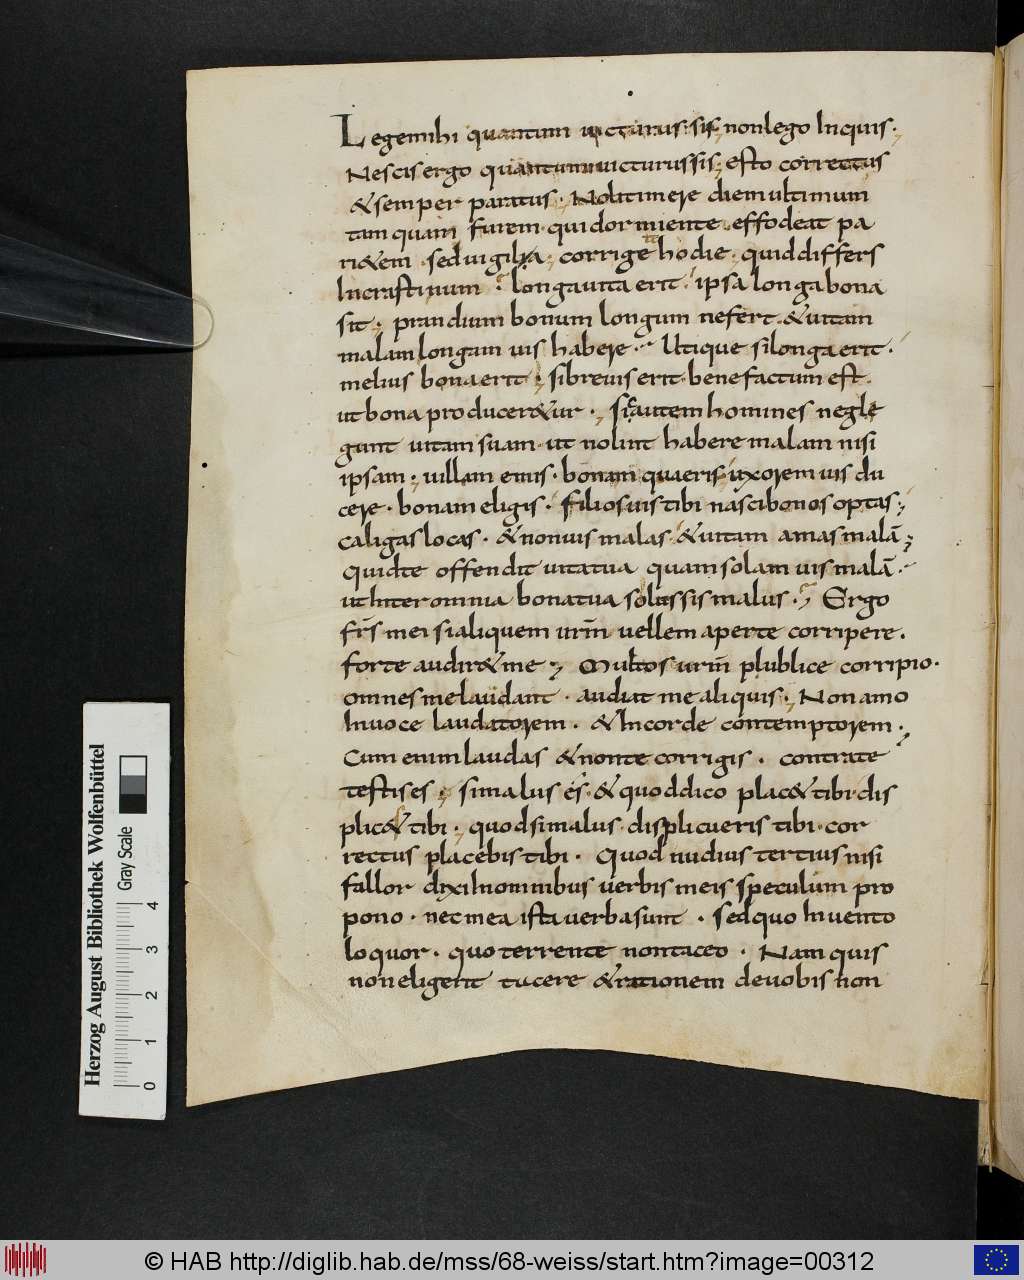 Lege mihi quantum uicturus sis; non lego Inquis.
Nescis ergo quantum uicturus sis; esto correctus
& semper paratus. Noli timere diem ultimum
tam quam furem. qui dormiente effodeat pa
ri&em. sed uigila; corrige te hodie. quid differs
Incrastinum. longa uita erit. ipsa longa bona
sit; prandium bonum longum nefert. & uitam
malam longam uis habere. Utique si longa erit.
melius bona erit; si breuis erit. bene factum est
ut bona producer&ur. si autem homines negle
gunt uitam suam. ut nolint habere malam nisi
ipsam; uillam emis. bonam quaeris; uxorem uis du
cere. bonam eligis. filios uis tibi nasci bonos optas;
caligas locas. & non uis malas. & uitam amas malā;
Quid te offendit uita tua quam solam uis malā.
ut Inter omnia bona tua solus sis malus. Ergo
fr̄s mei si aliquem urm̄ uellem aperte corripere.
forte audir& me; Multos urm̄ plublice corripio.
omnes me laudant. audiat me aliquis. Non amo
Inuoce laudatorem. & Incorde contemptorem.
Cum enim laudas & non te corrigis. contra te
testis es; si malus es. & quod dico plac& tibi. dis
plic& tibi. quod si malus displicueris tibi. cor
rectus placebis tibi. Quod nudius tertius nisi
fallor dixi Inomnibus uerbis meis speculum pro
pono. nec mea ista uerba sunt. sed quo Inuento
loquor. quo terrente non taceo. Nam quis
non eligerit tacere & rationem de uobis non
Herzog August Bibliothek Wolfenbüttel
Gray Scale
0 1 2 3 4
© HAB http://diglib.hab.de/mss/68-weiss/start.htm?image=00312